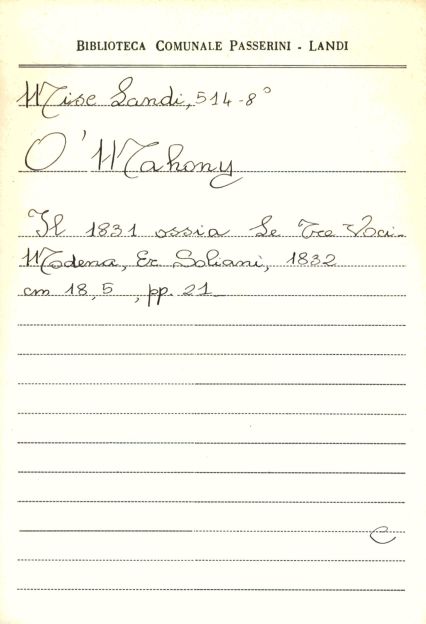 BIBLIOTECA COMUNALE PASSERINI - LANDI
Misc Landi, 514-8°
O'Mahony
Il 1831 ossia Le Tre Voci-
Modena, Er Soliani, 1832
cm 18,5 , pp. 21
C